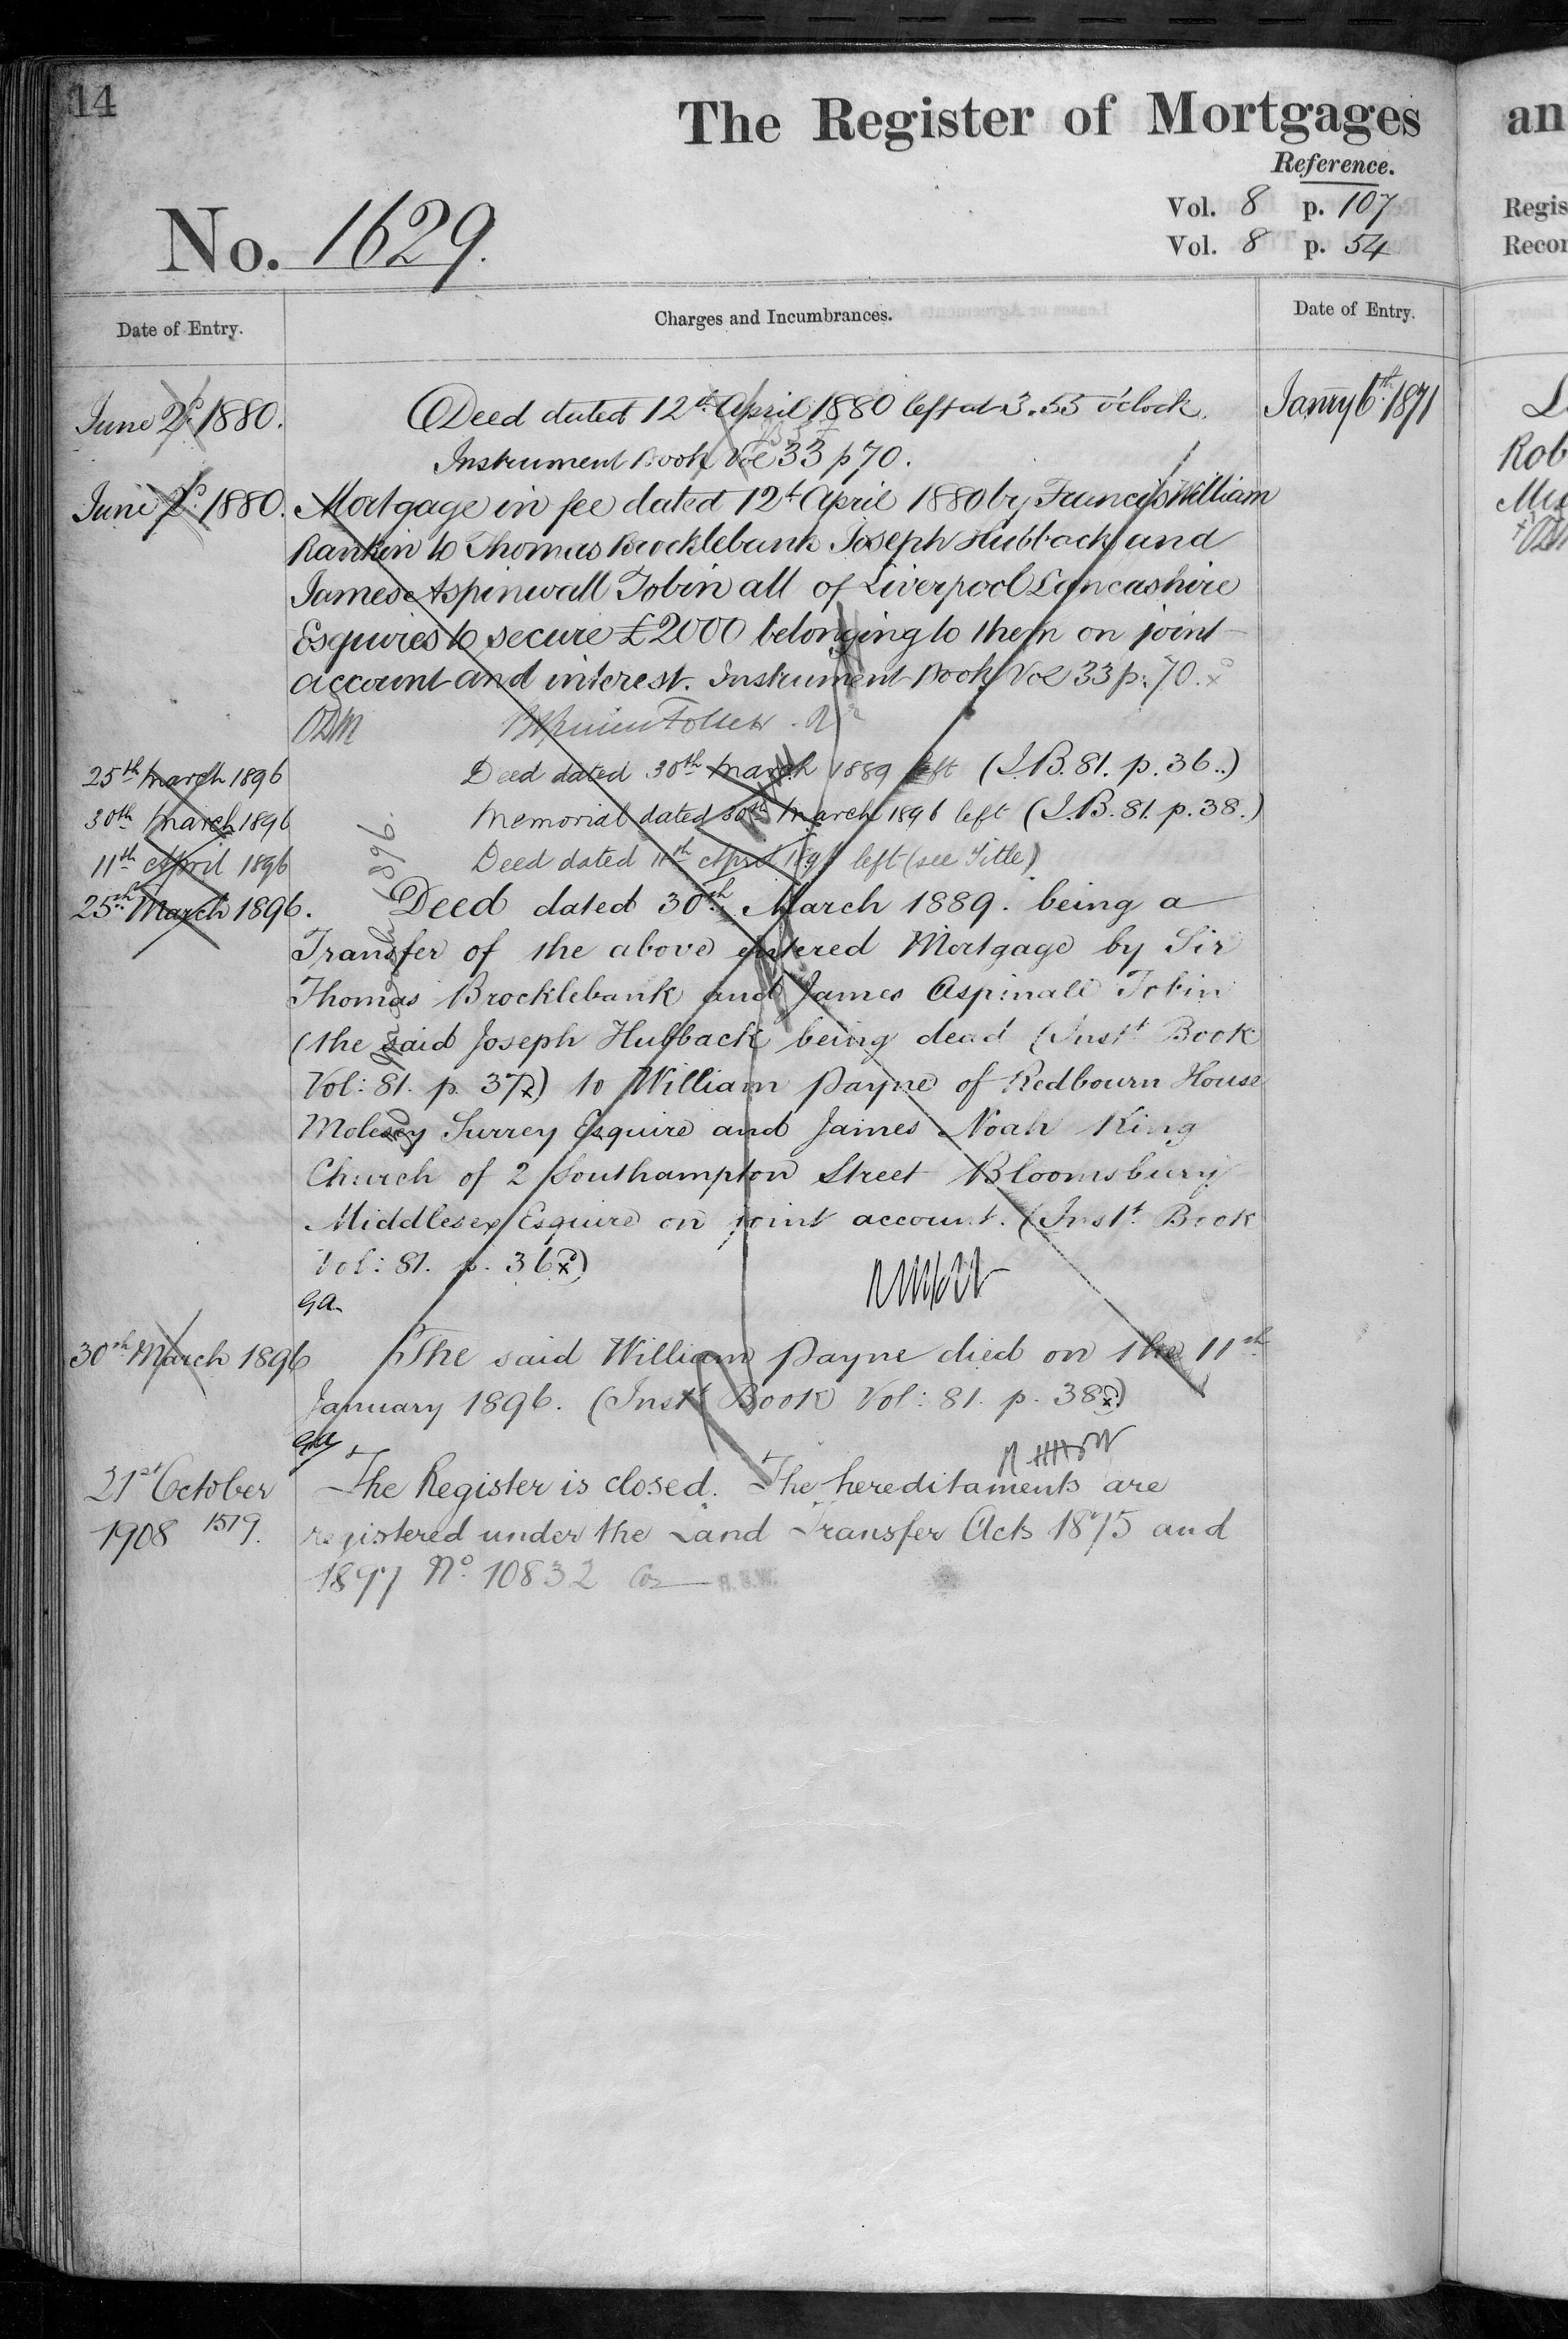 14
The Register of Mortgages
Reference.
Vol. 8 p. 107
Vol. 8 p. 54
No. 1629.
Date of Entry.
Charges and Incumbrances.
Date of Entry.
June 2d 1880.
Deed dated 12th April 1880 left at 3.55 o'clock.
Janry 6th 1871
Instrument Book Vol 33 p 70.
June 2d 1880.
Mortgage in fee dated 12th April 1880 by Francis William
Rankin to Thomas Brocklebank Joseph Hubback and
James Aspinwall Tobin all of Liverpool Lancashire
Esquires to secure £2000 belonging to them on joint
account and interest. Instrument Book Vol 33 p. 70.
25th March 1896
Deed dated 30th March 1889 left (I.B. 81. p. 36..)
30th March 1896
Memorial dated 30th March 1896 left (I.B. 81. p. 38.)
11th April 1896
Deed dated 11th April 1896 left (see Title)
25th March 1896.
Deed dated 30th March 1889. being a
Transfer of the above entered Mortgage by Sir
Thomas Brocklebank and James Aspinall Tobin
(the said Joseph Hubback being dead (Instt Book
Vol: 81. p. 37) to William Payne of Redbourn House
Molesey Surrey Esquire and James Noah King
Church of 2 Southampton Street Bloomsbury
Middlesex Esquire on joint account. (Instt Book
Vol: 81. p. 36)
GA
30th March 1896
The said William Payne died on the 11th
January 1896. (Instt Book Vol: 81. p. 38)
GA
21st October
1908 1519.
The Register is closed. The hereditaments are
registered under the Land Transfer Acts 1875 and
1897 No 10832
an
Regis
Recor
Rob